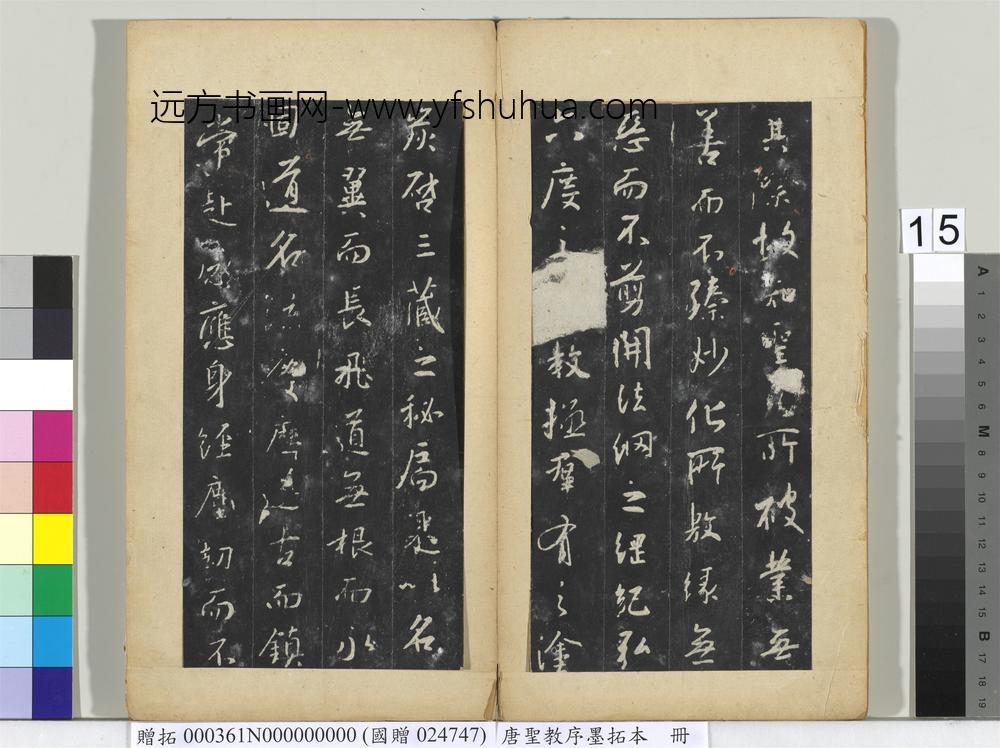 远方书画网-www.yfshuhua.com
其際故知聖所被業無
善而不臻妙化所敷緣無
惡而不剪開法網之綱紀弘
六度之教拯群有之塗
炭啓三藏之秘扃是以名
無翼而長飛道無根而永
固道名流慶歷遂古而鎮
常赴感應身經塵劫而不
15
A 1 2 3 4 5 6 M 8 9 10 11 12 13 14 15 B 17 18 19
贈拓 000361N000000000 (國贈 024747) 唐聖教序墨拓本 冊